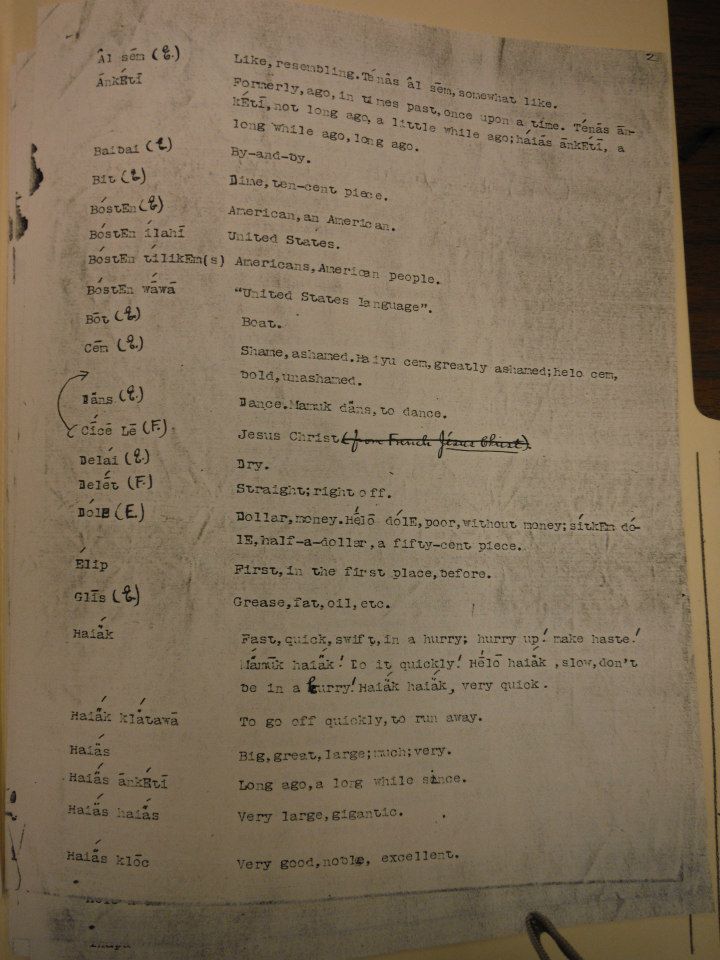 2
Âl sēm (E.) Like, resembling. Ténās âl sēm, somewhat like.
ÁnkEtī Formerly, ago, in times past, once upon a time. Ténās ān-
kÉtī, not long ago, a little while ago; háiās ānkÉtī, a
long while ago, long ago.
Baibai (E) By-and-by.
Bit (E) Dime, ten-cent piece.
BóstEn (E) American, an American.
BóstEn ílahī United States.
BóstEn tílikEm(s) Americans, American people.
BóstEn wāwā "United States language".
Bōt (E) Boat.
Cēm (E.) Shame, ashamed. Haiyu cem, greatly ashamed; helo cem,
bold, unashamed.
Dāns (E.) Dance. Mamuk dāns, to dance.
Cícē Lē (F.) Jesus Christ (from French Jésus Christ).
Delái (E.) Dry.
Delét (F.) Straight; right off.
DólE (E.) Dollar, money. Hélō dólE, poor, without money; sítkEm dó-
lE, half-a-dollar, a fifty-cent piece.
Élip First, in the first place, before.
Glīs (E) Grease, fat, oil, etc.
Haiák Fast, quick, swift, in a hurry; hurry up! make haste!
Mámūk haiák! Do it quickly! Hélō haiák, slow, don't
be in a hurry! Haiák haiák, very quick.
Haiák klátawā To go off quickly, to run away.
Haiás Big, great, large; much; very.
Haiás ānkÉtī Long ago, a long while since.
Haiás haiás Very large, gigantic.
Haiás klōc Very good, noble, excellent.